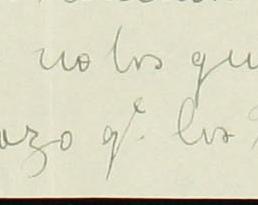 no los qu
azo qe. los